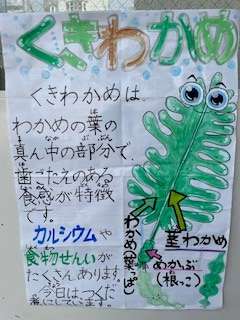 くきわかめ
くきわかめは、
わかめの葉の
真ん中の部分で、
歯ごたえのある
食感が特徴
です。
カルシウムや
食物せんいが
たくさんあります
今日はつくだ
煮にしています。
茎わかめ
わかめ(葉っぱ)
めかぶ
(根っこ)